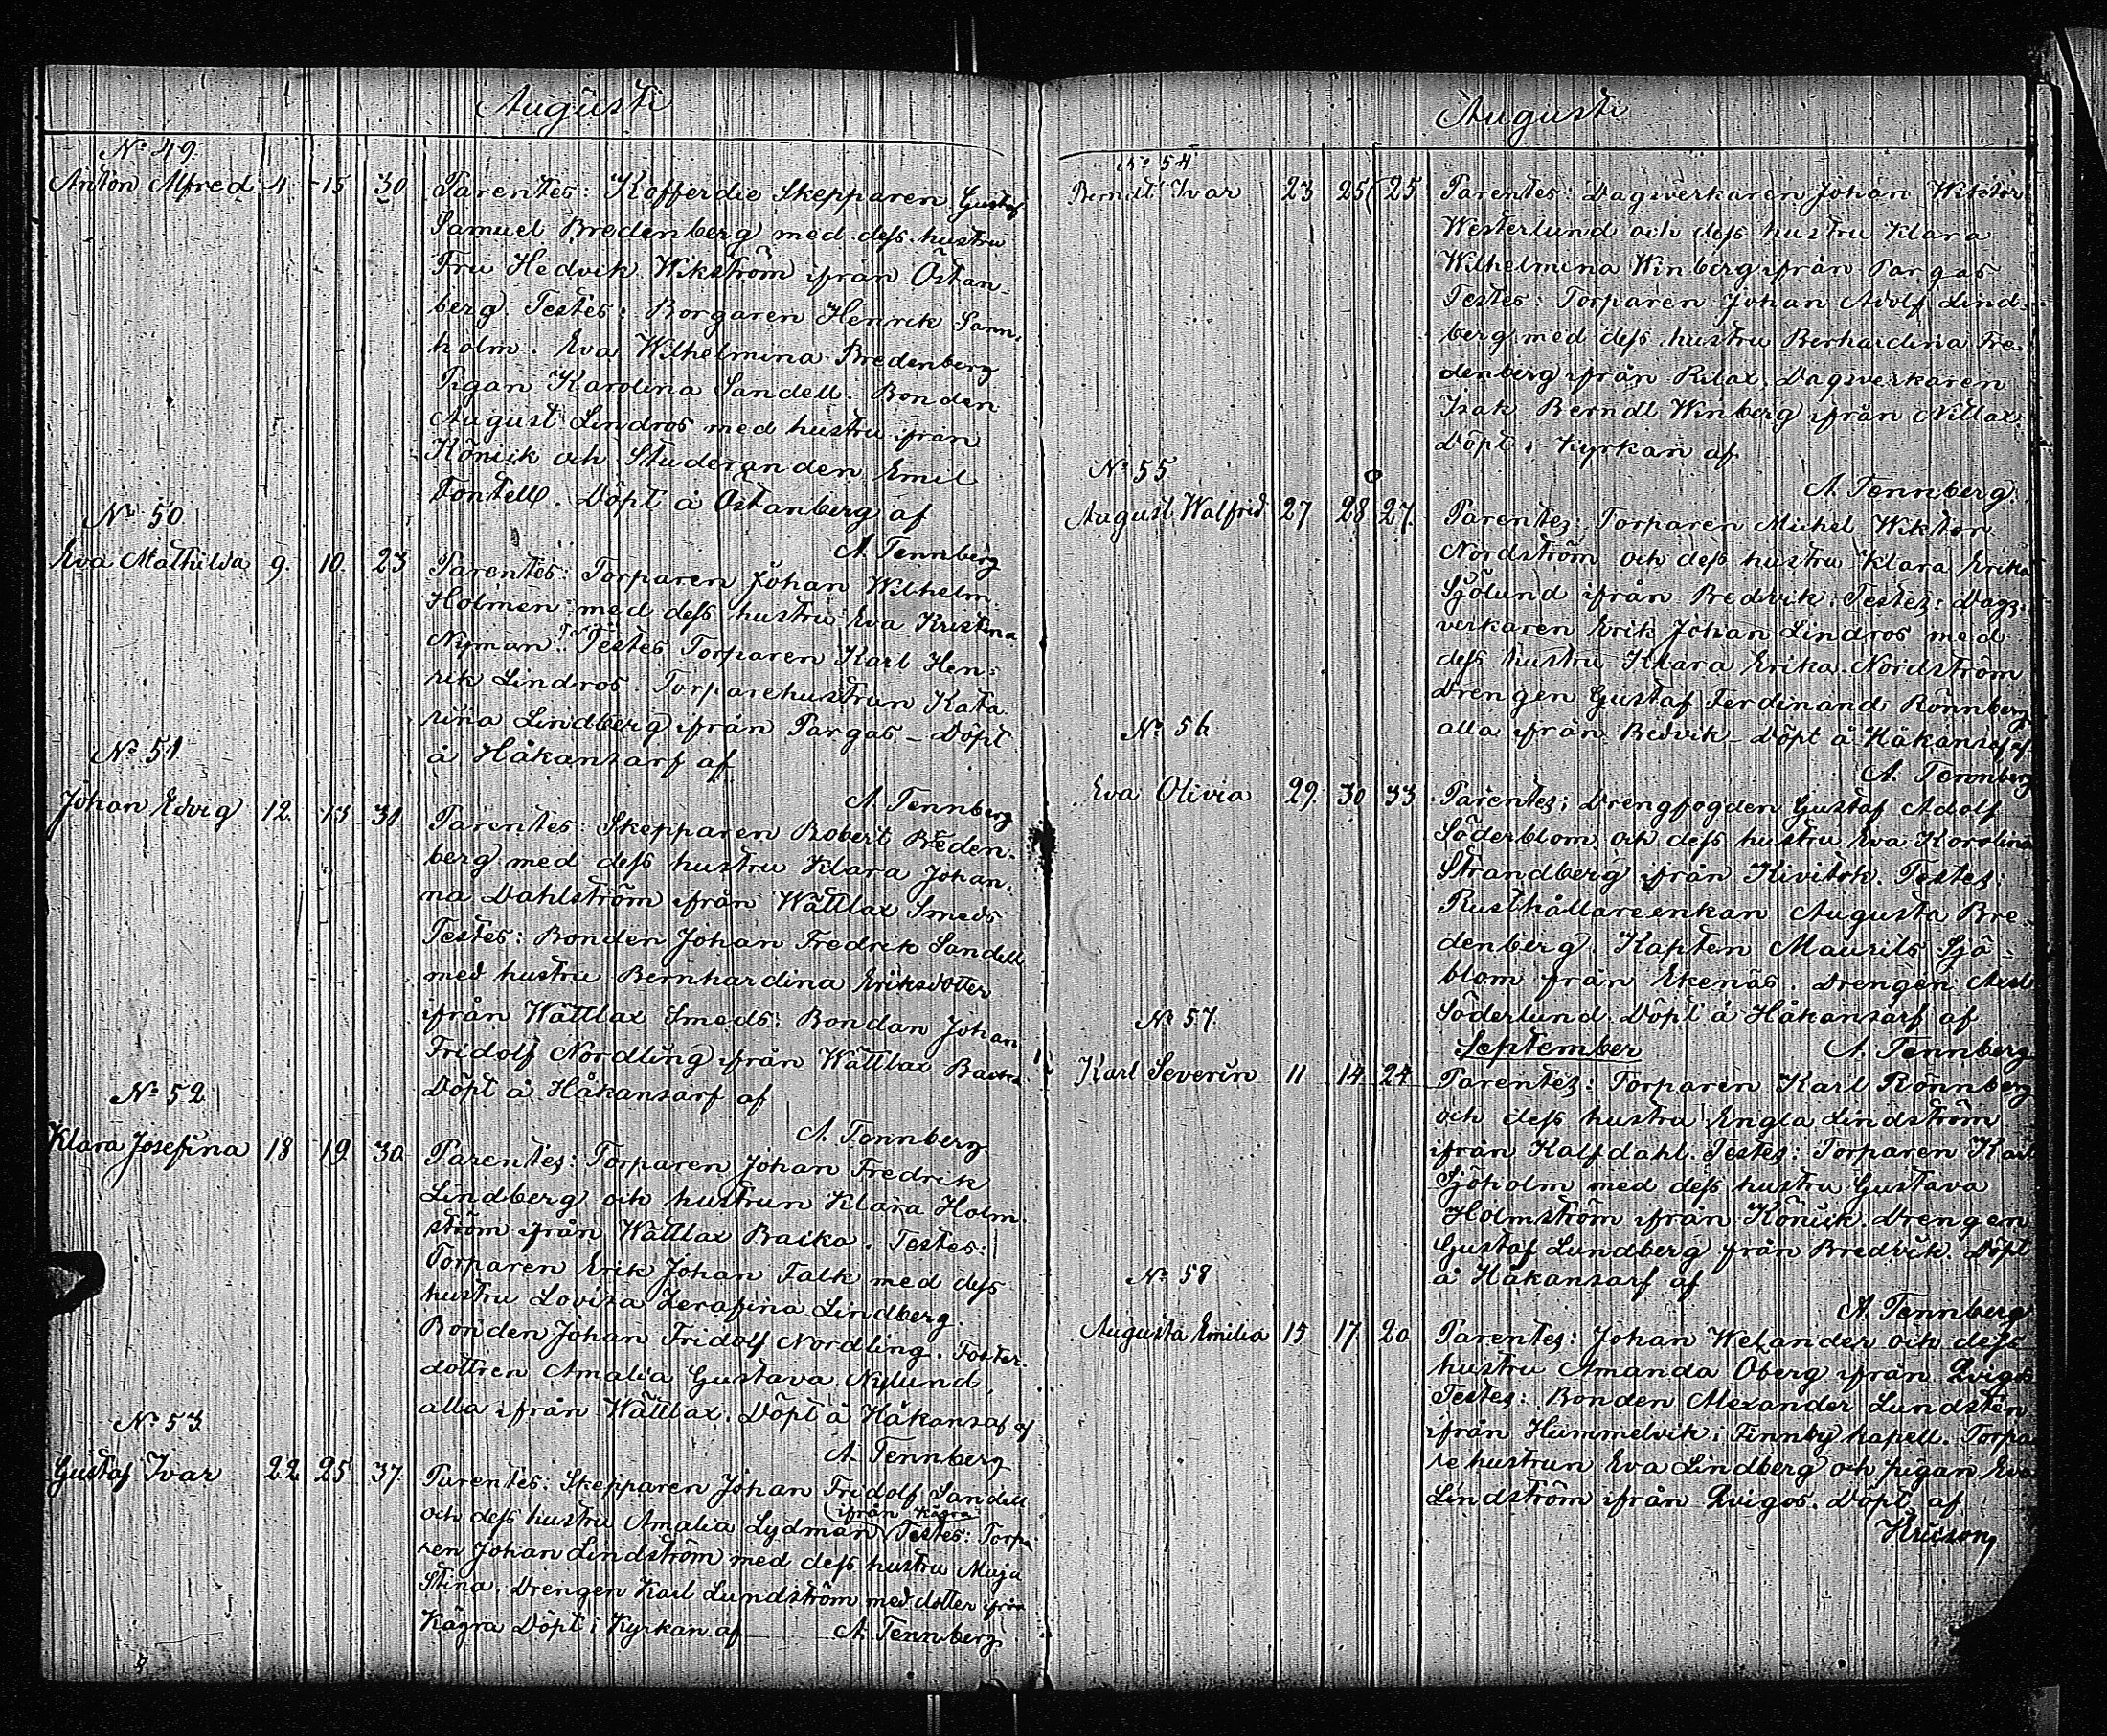 Augusti
No 49
Anton Alfred 4 15 30 Parentes: Kofferdie Skepparen Gustaf
Samuel Bredenberg med dess hustru
Fru Hedvik Wikström ifrån Östan-
berg. Testes: Borgaren Henrik Sann-
holm. Eva Wilhelmina Bredenberg
Pigan Karolina Sandell. Bonden
August Lindros med hustru ifrån
Könick och Studeranden Emil
Fontell. Döpt å Östanberg af
A. Tennberg
No 50
Eva Mathilda 9 10 23 Parentes: Torparen Johan Wilhelm
Holmen med dess hustru Eva Kristina
Nyman. Testes Torparen Karl Hen-
rik Lindros. Torparehustrun Kata
rina Lindberg ifrån Pargas – Döpt
å Håkansarf af
A. Tennberg
No 51
Johan Edvig 12 13 31 Parentes: Skepparen Robert Breden-
berg med dess hustru Klara Johan-
na Dahlström ifrån Wättlax Smeds
Testes: Bonden Johan Fredrik Sandell
med hustru Bernhardina Eriksdotter
ifrån Wättlax Smeds: Bondan Johan
Fridolf Nordling ifrån Wättlax Backa
Döpt å Håkansarf af
A. Tennberg
No 52
Klara Josefina 18 19 30 Parentes: Torparen Johan Fredrik
Lindberg och hustrun Klara Holm-
ström ifrån Wättlax Backa. Testes:
Torparen Erik Johan Falk med dess
hustru Lovisa Zerafina Lindberg.
Bonden Johan Fridolf Nordling. Foster-
dottren Amalia Gustava Nylund,
alla ifrån Wättlax. Döpt å Håkansaf af
A. Tennberg
No 53
Gustaf Ivar 22 25 37 Parentes: Skepparen Johan Fridolf Sandell
ifrån Kägra
och dess hustru Amalia Lydman Testes: Torpa
ren Johan Lindström med dess hustru Maja
Stina. Drengen Karl Lundström med dotter ifrån
Kägra Döpt i Kyrkan af A. Tennberg
Augusti
No 54
Berndt Ivar 23 25 25 Parentes: Dagsverkaren Johan Wiktor
Westerlund och dess hustru Klara
Wilhelmina Winberg ifrån Pargas
Testes: Torparen Johan Adolf Lind-
berg med dess hustru Berhardina Fre-
denberg ifrån Rilax. Dagsverkaren
Isak Berndt Winberg ifrån Nitlax.
Döpt i Kyrkan af
A. Tennberg
No 55
August Walfrid 27 28 27 Parentes: Torparen Mickel Wiktor
Nordström och dess hustru Klara Erika
Sjölund ifrån Bredvik. Testes: Dags-
verkaren Erik Johan Lindros med
dess hustru Klara Erika Nordström
Drengen Gustaf Ferdinand Rönnberg
alla ifrån Bredvik – Döpt å Håkansaf af
A. Tennberg
No 56
Eva Olivia 29 30 33 Parentes: Drengfogden Gustaf Adolf
Söderblom och dess hustru Eva Karolina
Strandberg ifrån Kivitok. Testes:
Rusthållareenkan Augusta Bre-
denberg. Kapten Maurits Sjö-
blom från Ekenäs. Drengen Axel
Söderlund. Döpt å Håkansarf af
September A. Tennberg
No 57
Karl Severin 11 14 24 Parentes: Torparen Karl Rönnberg
och dess hustru Engla Lindström
ifrån Kalfdahl. Testes: Torparen Karl
Sjöholm med dess hustru Gustava
Holmström ifrån Könick. Drengen
Gustaf Lundberg från Bredvik. Döpt
å Håkansarf af
A. Tennberg
No 58
Augusta Emilia 15 17 20 Parentes: Johan Welander och dess
hustru Amanda Öberg ifrån Qvigos
Testes: Bonden Alexander Lundsten
ifrån Hummelvik i Finnby kapell. Torpa
re hustrun Eva Lindberg och pigan Eva
Lindström ifrån Qvigos. Döpt af